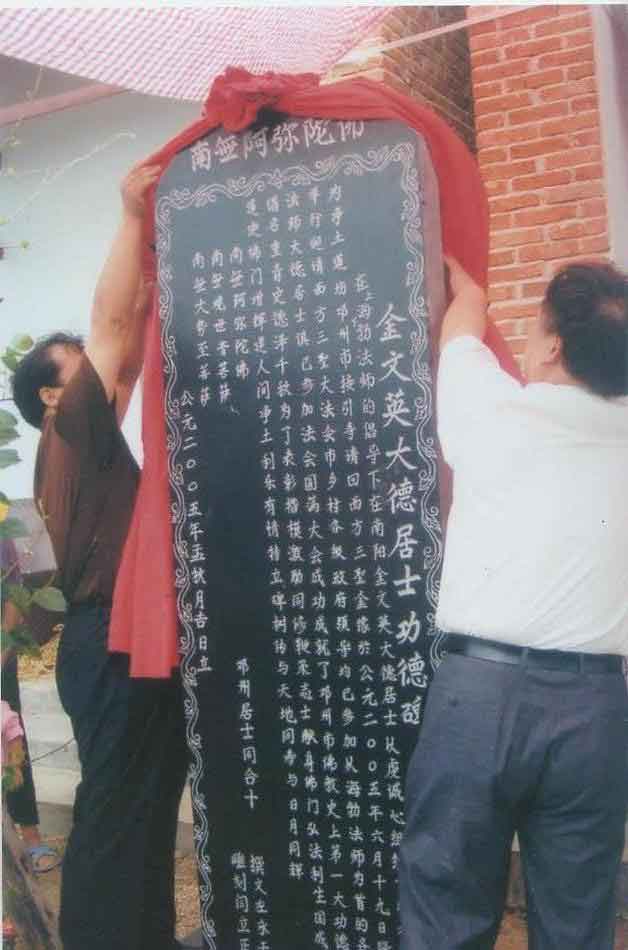 南無阿弥陀佛
金文英大德居士功德碑
在海勃法师的倡导下在南阳金文英大德居士从虔诚心
为净土道场邓州市接引寺请回西方三聖金像於公元二00五年六月十九日
举行迎请西方三聖大法会市乡村各级政府领导均已参加从海勃法师为首的各
法师大德居士俱已参加法会圆满大会成功成就了邓州市佛教史上第一大功德
德名垂青史德泽千秋为了表彰楷模激励同修鞭策志士献身佛门弘法利生
造史佛门增辉进人间净土利乐有情特立碑树传与天地同寿与日月同辉
南無阿弥陀佛
南無观世音菩萨
南無大势至菩萨
邓州居士同合十
公元二00五年五秋月吉日立
撰文
雕刻闫立